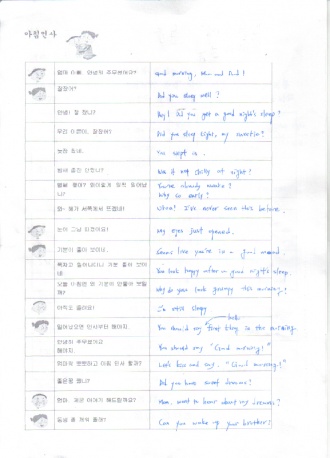 아침인사
엄마 아빠, 안녕히 주무셨어요? Good morning, Mom and Dad!
잘잤니? Did you sleep well?
안녕! 잘 잤니? Did you get a good night's sleep?
우리 이쁜이, 잘잤어? Did you sleep tight, my sweetie?
늦잠 잤네. You slept in.
밤새 춥진 않았니? Was it not chilly at night?
벌써 일어 You're already awake!
났니? Why so early?
와~ 해가 서쪽에서 뜨겠네! I've never seen this before.
눈이 그냥 떠졌어요? My eyes just opened.
기분이 좋아 보이네. Seems like you're in a good mood
You look happy after a good night's sleep.
오늘 아침엔 왜 기분이 Why do you look grumpy this morning?
아직도 졸려요! I'm still sleepy
일어났으면 인사부터 해야지. You should say hello first thing in the morning.
안녕히 주무셨어요 해야지. You should say "Good morning!"
아침 인사 할까? Let's kiss and say, "Good morning!"
좋은꿈 꿨니? Did you have sweet dreams?
엄마 제 꿈 이야기 해드릴까요? Mom, want to hear about my dreams?
동생 좀 깨워 줄래? Can you wake up your brother?